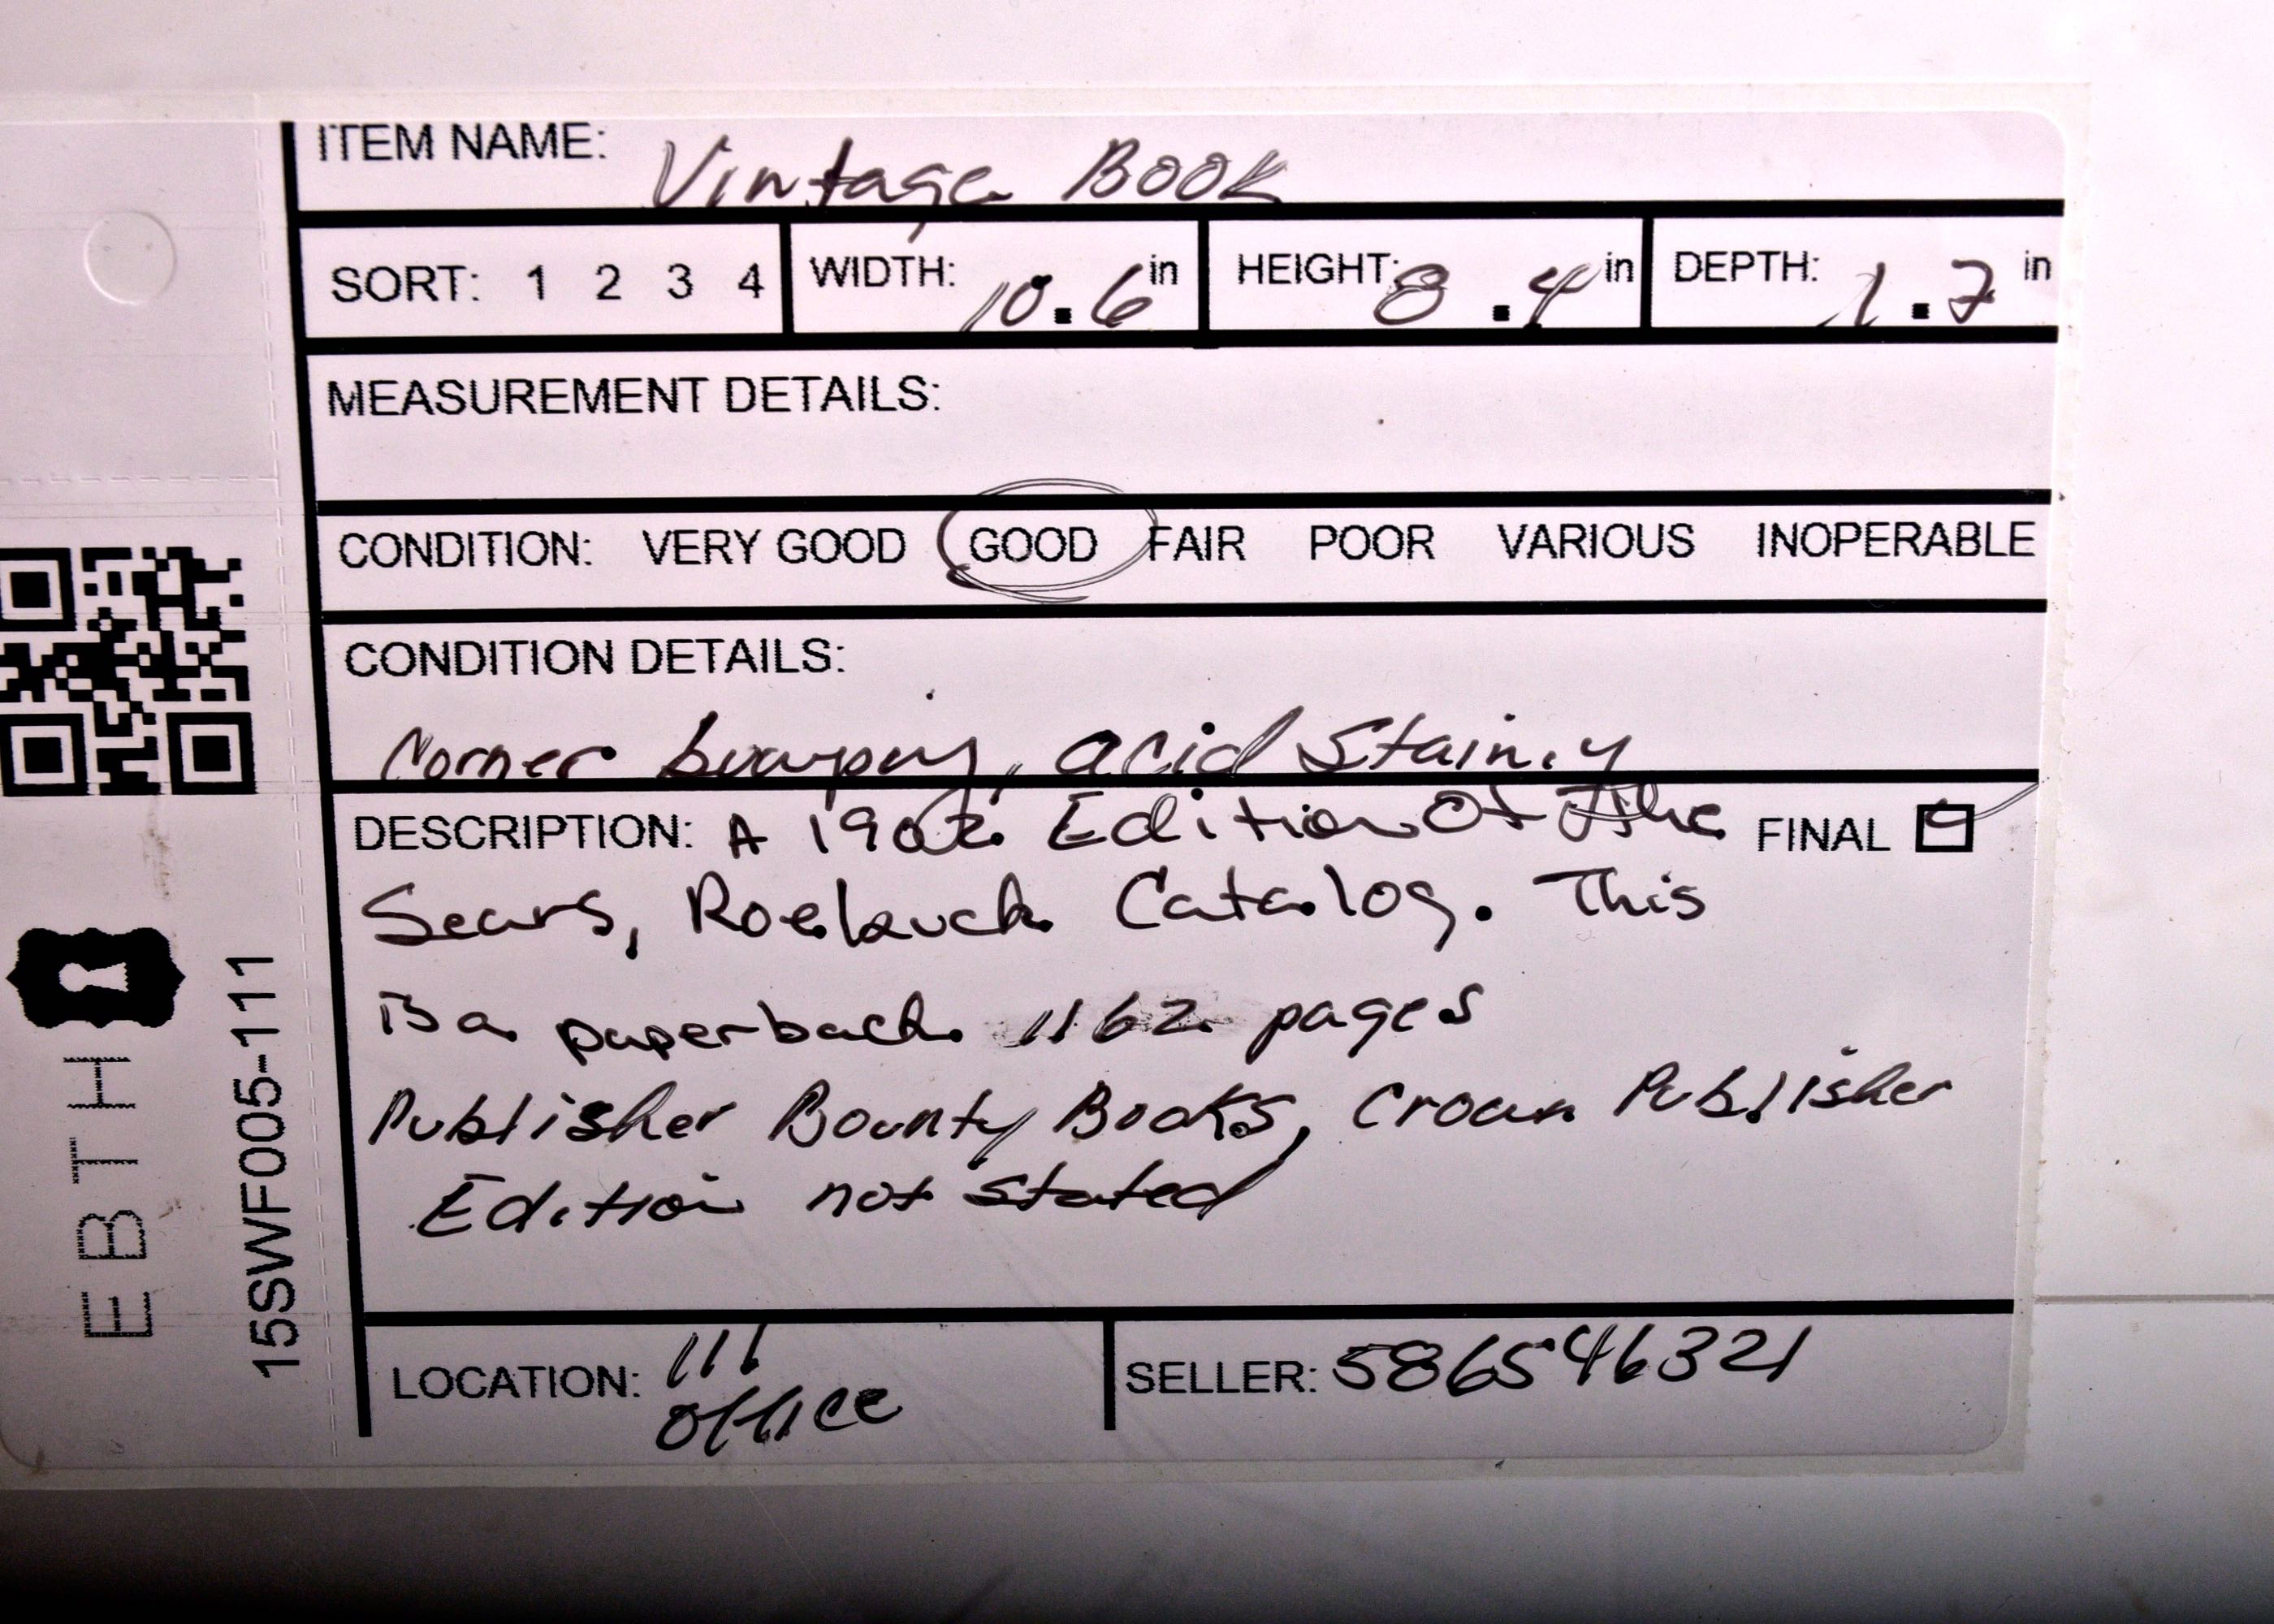 ITEM NAME: Vintage Book
SORT: 1 2 3 4 WIDTH: 10.6 in HEIGHT: 8.4 in DEPTH: 1.7 in
MEASUREMENT DETAILS:
CONDITION: VERY GOOD GOOD FAIR POOR VARIOUS INOPERABLE
CONDITION DETAILS:
Corner bumping, acid Staining
DESCRIPTION: A 1902 Edition Of The FINAL
Sears, Roebuck Catalog. This
is a paperback 1162 pages
Publisher Bounty Books, Crown Publisher
Edition not Stated
LOCATION: 111 SELLER: 586546321
office
EBTH
15SWF005-111